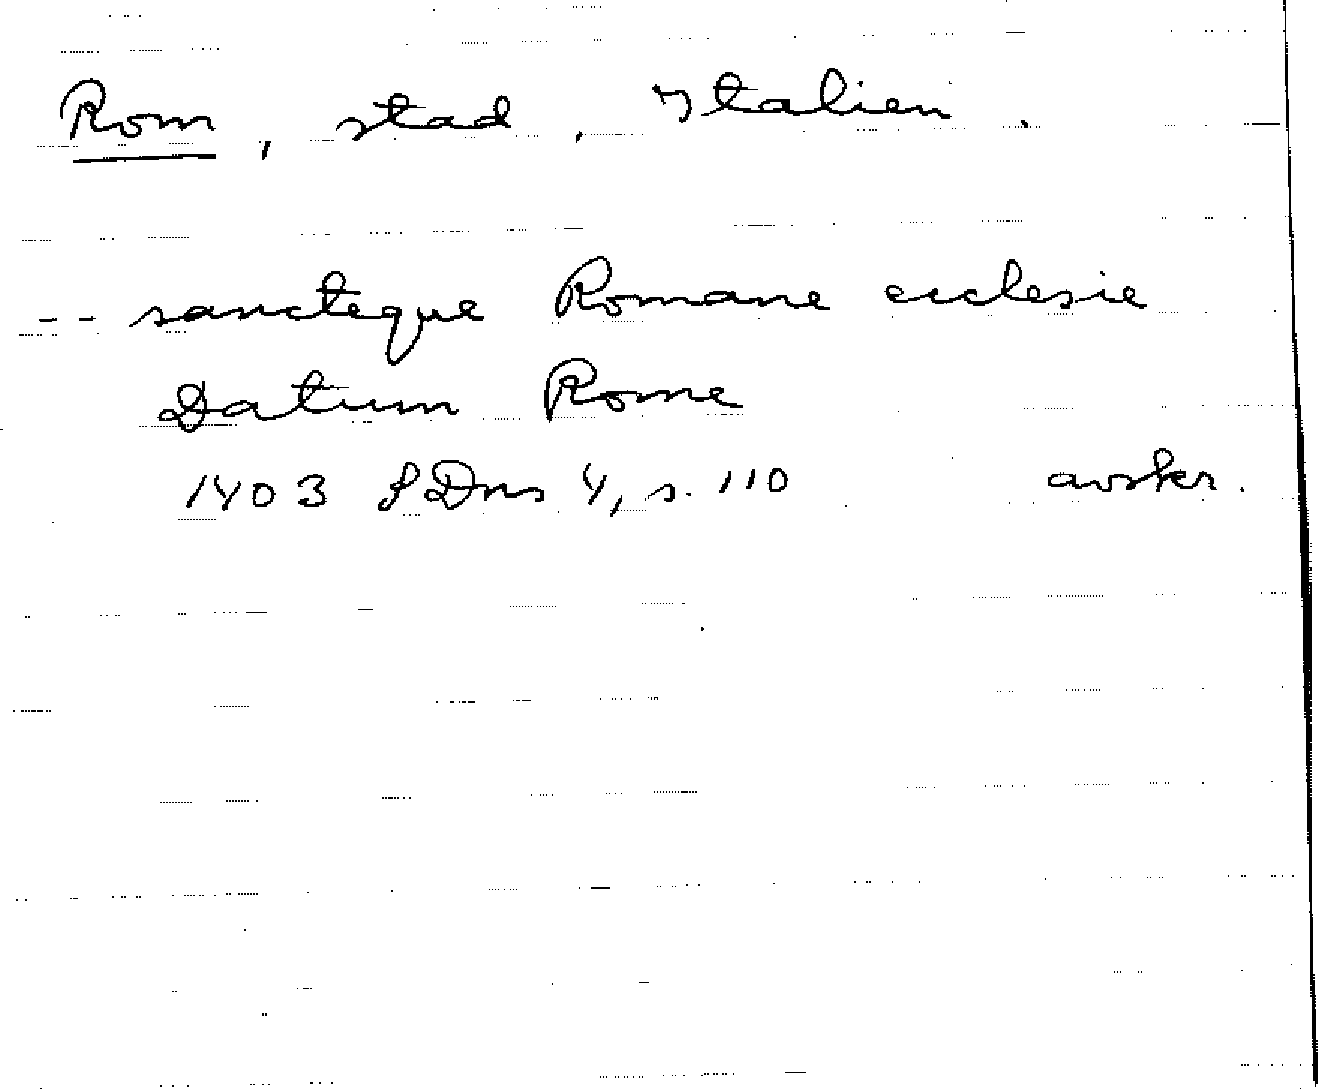 Rom, stad, Italien.
-- sancteque Romane ecclesie
Datum Rome
1403 SDns 4, s. 110 avskr.